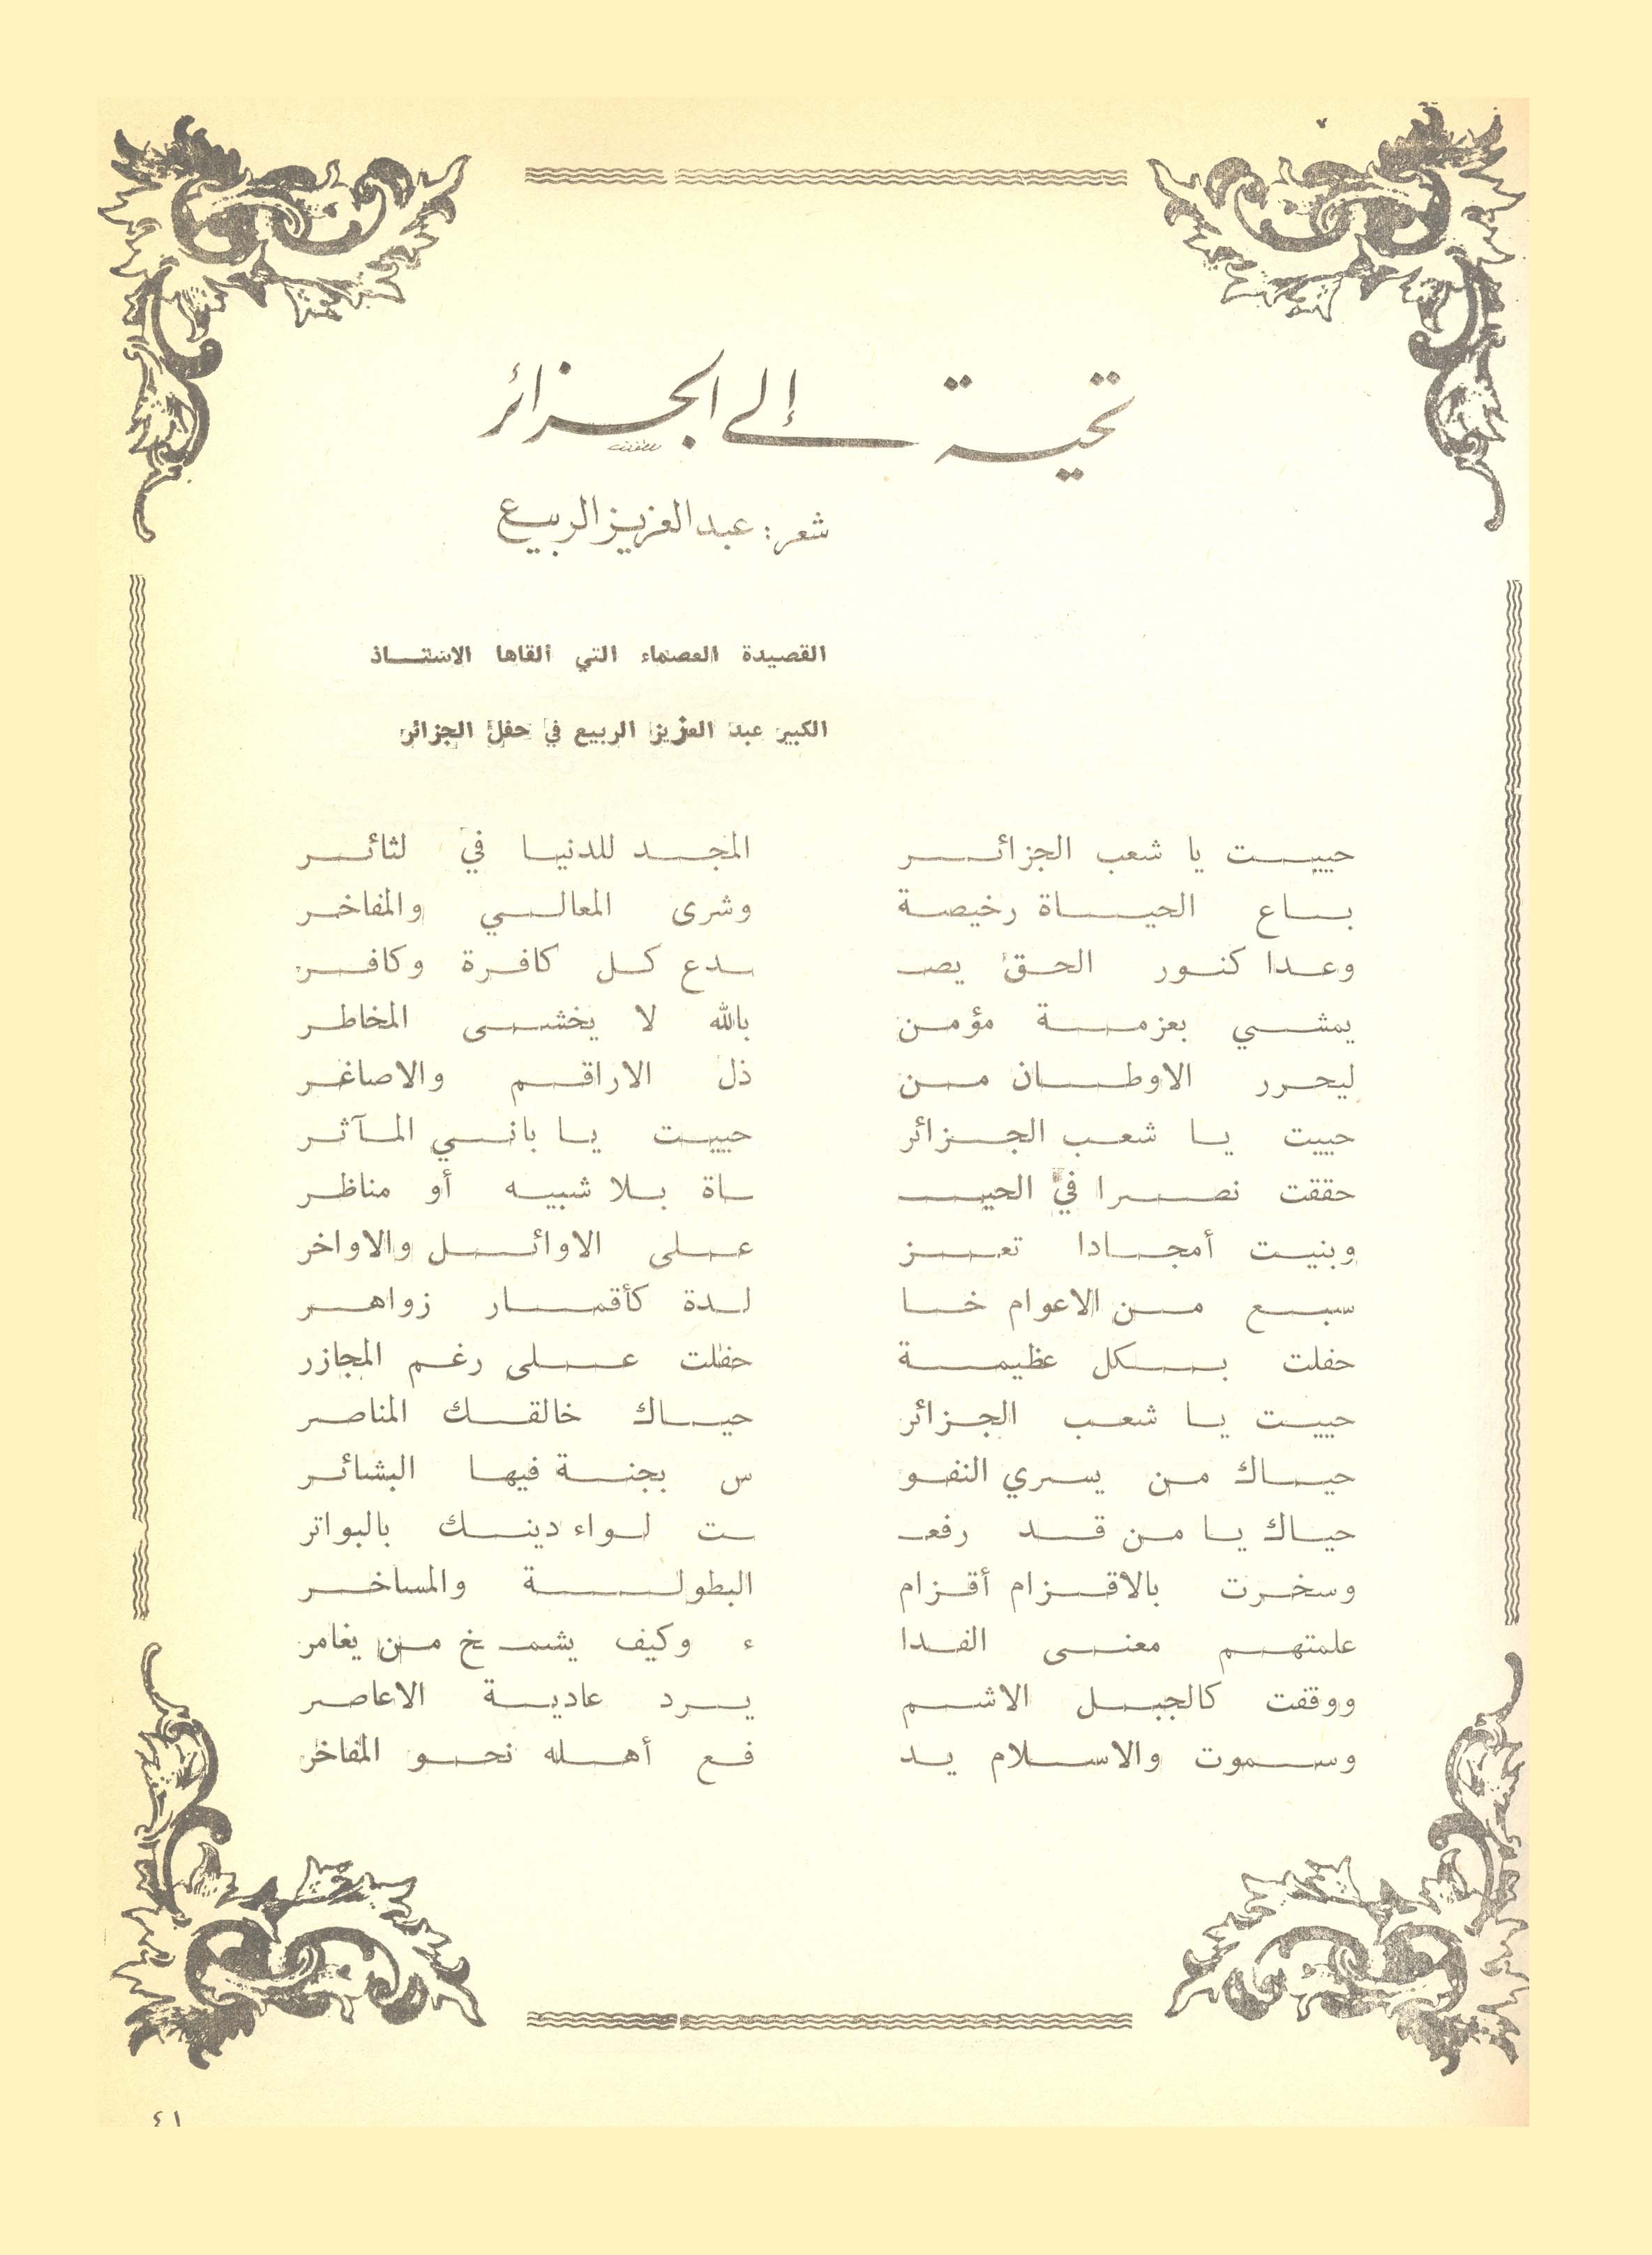 تحية إلى الجزائر
شعر: عبد العزيز الربيع
القصيدة العصماء التي ألقاها الاستاذ
الكبير عبد العزيز الربيع في حفل الجزائر
حييت يا شعب الجزائر المجد للدنيا في لثائر
باع الحياة رخيصة وشرى المعالي والمفاخر
وعدا كنور الحق يصـ ـدع كل كافرة وكافر
يمشي بعزمة مؤمن بالله لا يخشى المخاطر
ليحرر الاوطان من ذل الاراقم والاصاغر
حييت يا شعب الجزائر حييت يا باني المآثر
حققت نصرا في الحيـ ـاة بلا شبيه أو مناظر
وبنيت أمجادا تعز على الاوائل والاواخر
سبع من الاعوام خا لدة كأقمار زواهر
حفلت بكل عظيمة حفلت على رغم المجازر
حييت يا شعب الجزائر حياك خالقك المناصر
حياك من يسري النفو س بجنة فيها البشائر
حياك يا من قد رفعـ ـت لواء دينك بالبواتر
وسخرت بالاقزام أقزام البطولة والمساخر
علمتهم معنى الفدا ء وكيف يشمخ من يغامر
ووقفت كالجبل الاشم يرد عادية الاعاصر
وسموت والاسلام يد فع أهله نحو المفاخر
٤١